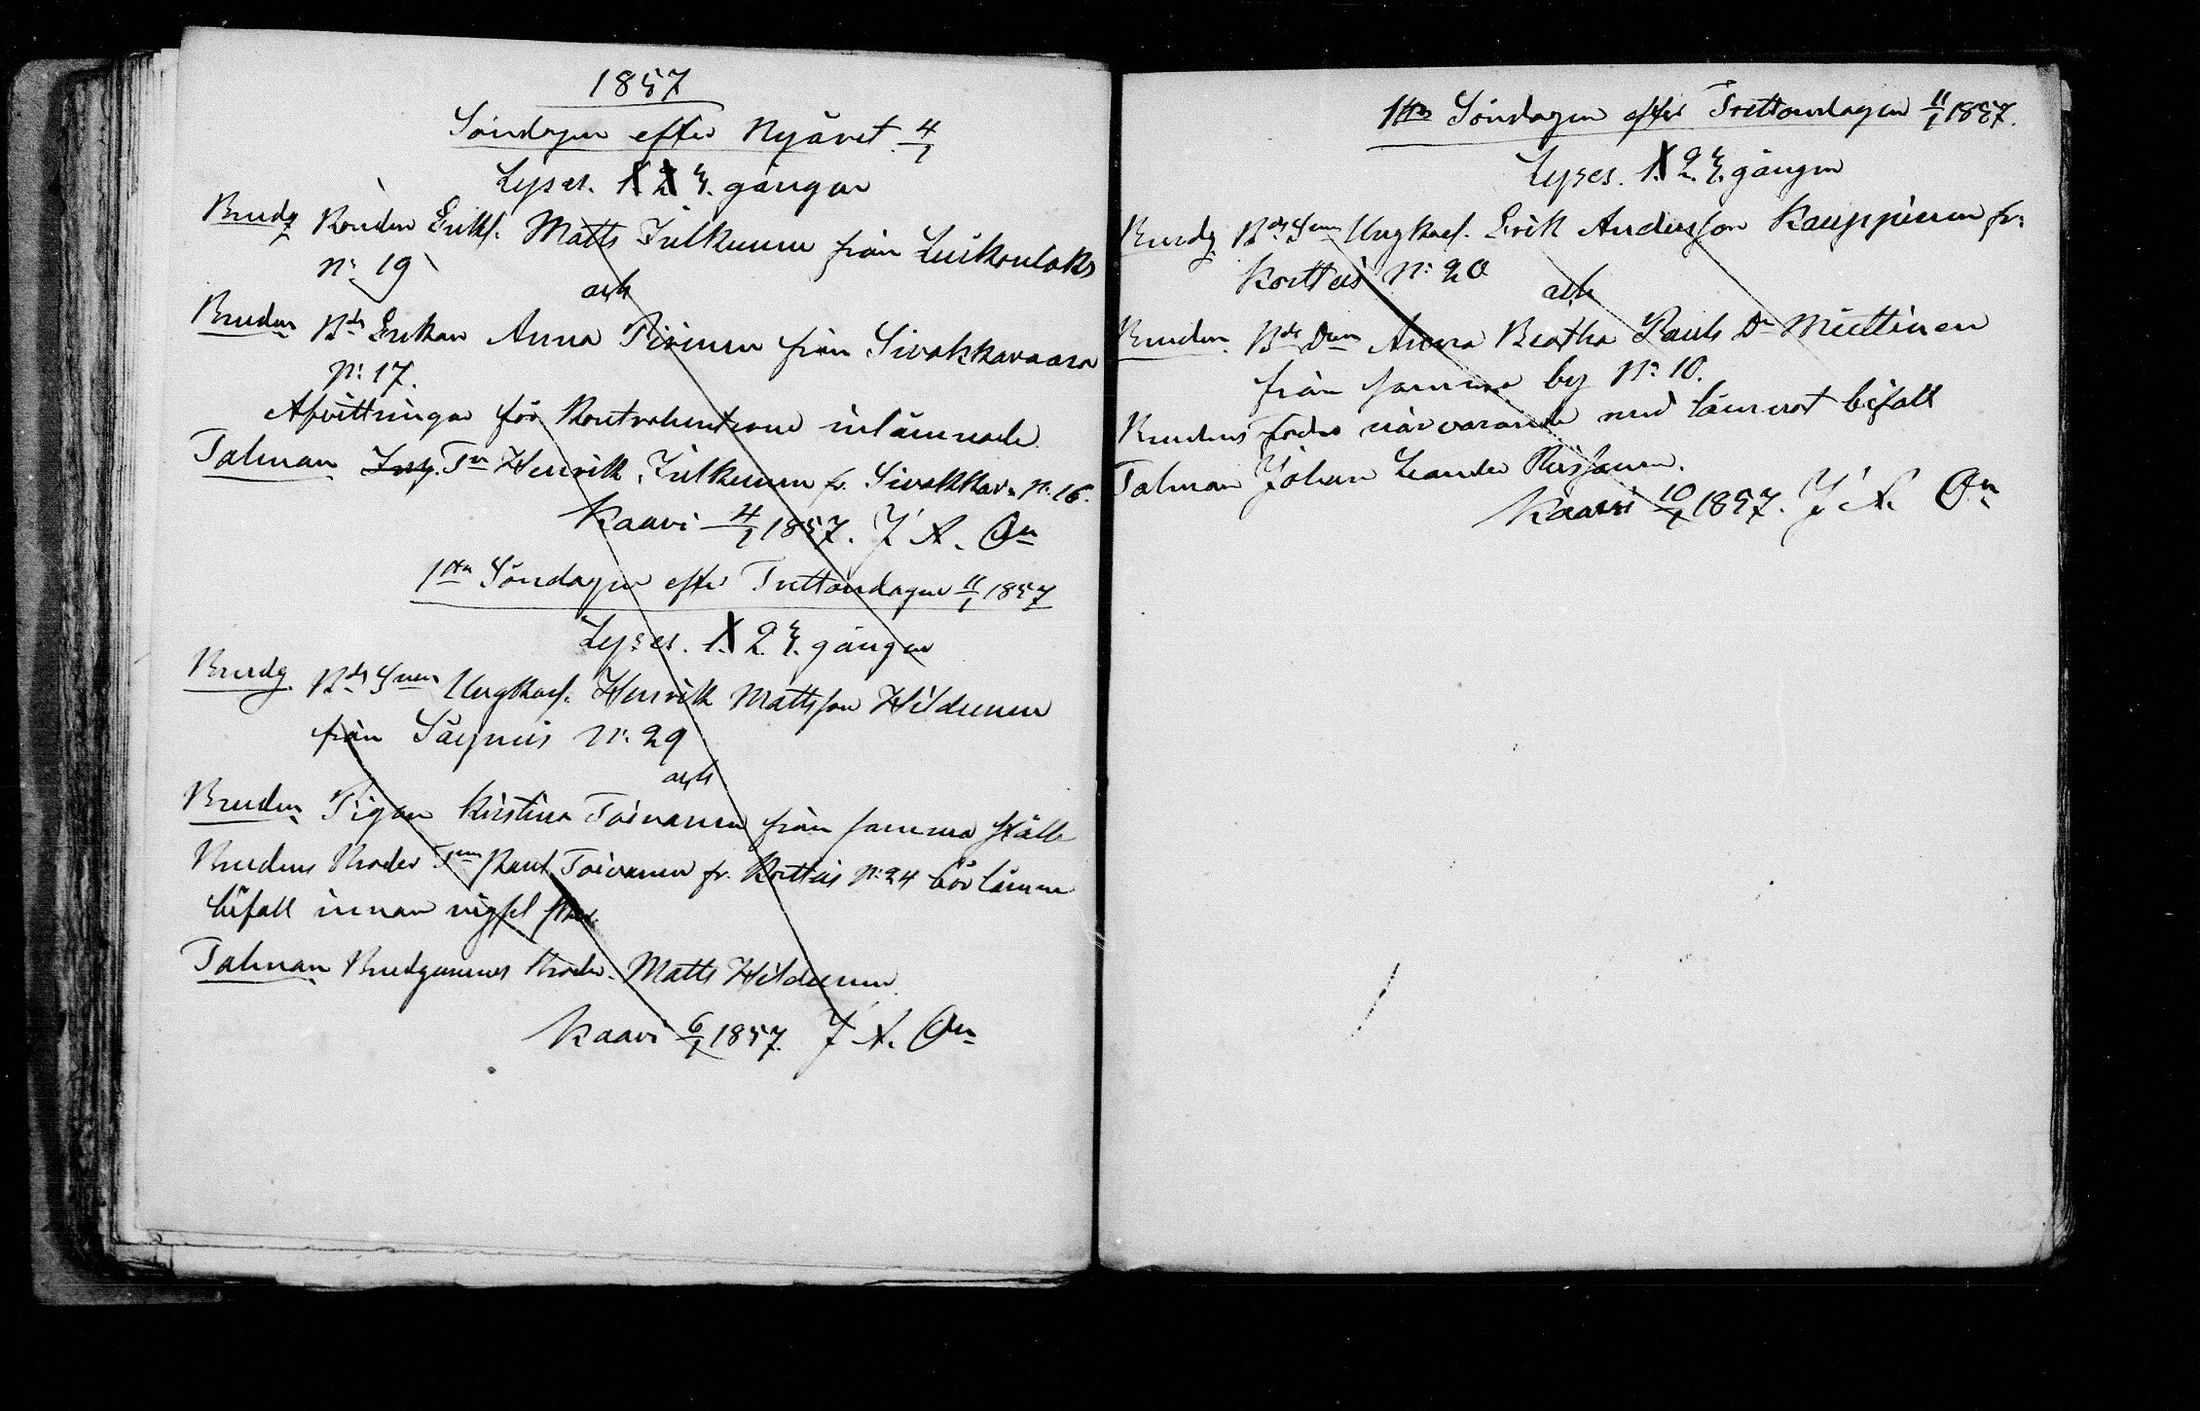 1857
Söndagen efter Nyåret 4/1
Lyses. 1. 2. 3. gången
Brudg Bonden Enkl. Matts Julkunen från Luikonlaks
No 19
och
Bruden Bds Enkan Anna Pirinen från Sivakkavaara
No 17.
Afvittringar för Kontrahenterne inlämnade
Talman Tn Henrik Julkunen fr. Sivakkav. No 16.
Kaavi 4/1 1857. J A. On
1sta Söndagen efter Trettondagen 11/1 1857
Lyses. 1. 2. 3. gången
Brudg. Bds Snen Ungkarl. Henrik Mattsson Hildunen
från Säynis No 29
och
Bruden Pigan Kirstina Toivanen från samma ställe
Brudens Broder Paul Toivanen fr. Kortteis No 24 bör lämna
bifall innan vigsel
Talman Brudgummens Broder Matts Hildunen
Kaavi 6/1 1857. J A. On
1sta Söndagen efter Trettondagen 11/1 1857.
Lyses. 1. 2. 3. gången
Brudg Bds Snen Ungkarl. Erik Andersson Kauppinen fr.
Kortteis No 20
och
Bruden Bds Dren Anna Beatha Pauls Dr Miettinen
från samma by No 10.
Brudens fader närvarande med lämnat bifall
Talman Johan Leander
Kaavi 10/1 1857. J A. On